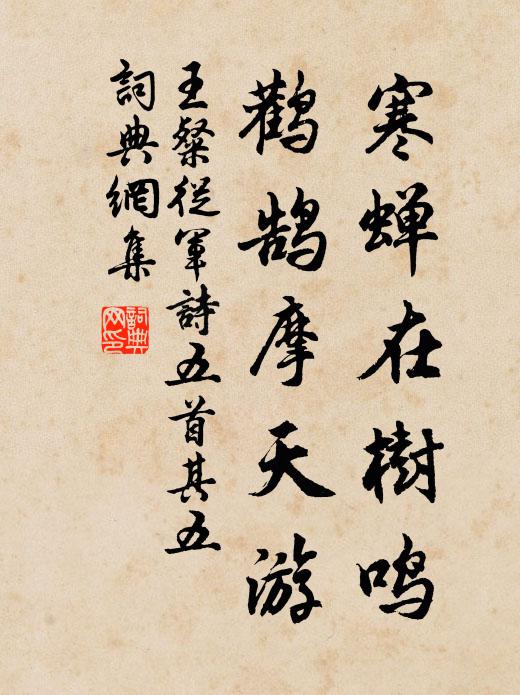 寒蝉在樹鸣
鹳鹄摩天游
王粲從軍詩五首其五
詞典網集
詞典
网印